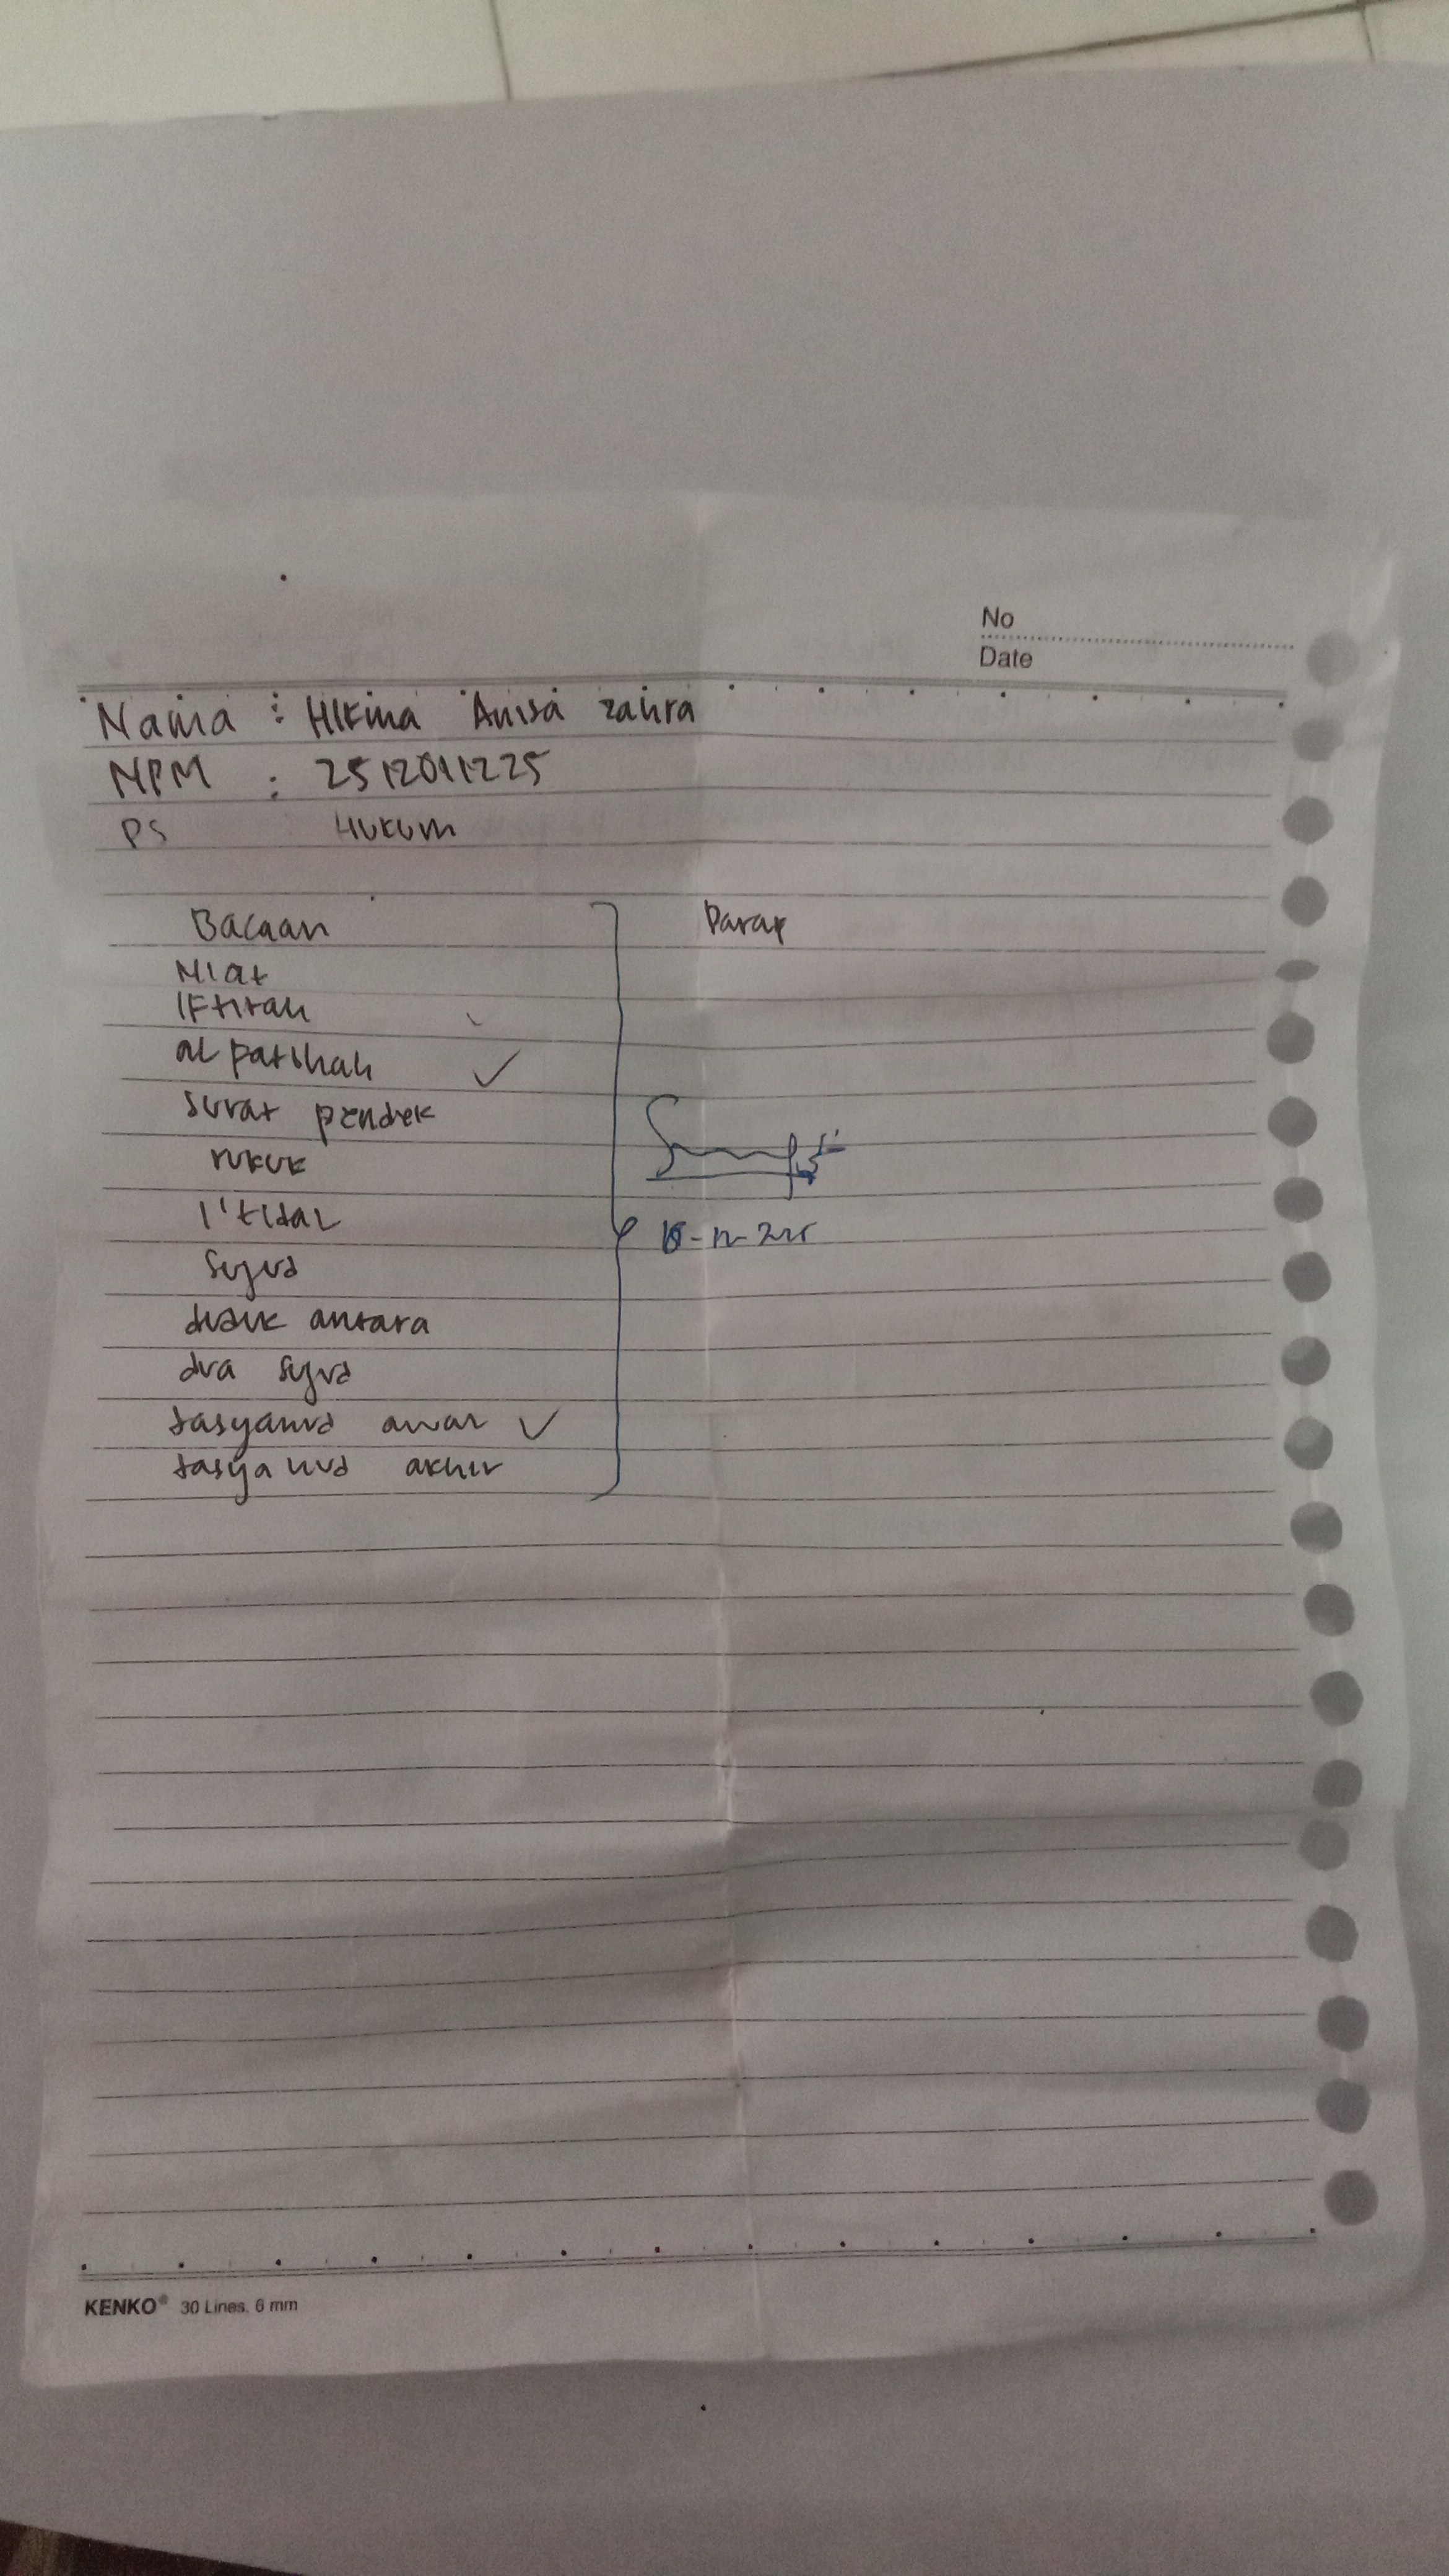 No
Date
Nama : Hikma Anisa Zahra
NPM : 2512011225
PS Hukum
Bacaan Paraf
Niat
Iftitah
al patihah ✓
surat pendek
rukuk
I'tidal
Sujud
duduk antara
dua sujud
tasyahud awal ✓
tasyahud akhir
KENKO® 30 Lines. 6 mm